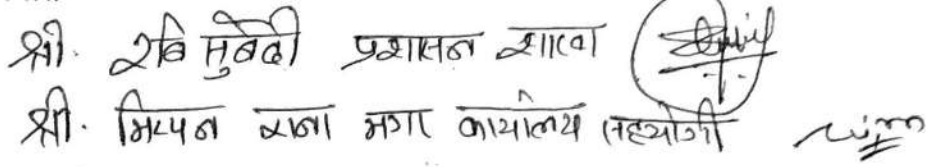 श्री. रवि सुवेदी प्रशासन शाखा
श्री. मिलन राना मगर कार्यालय सहयोगी